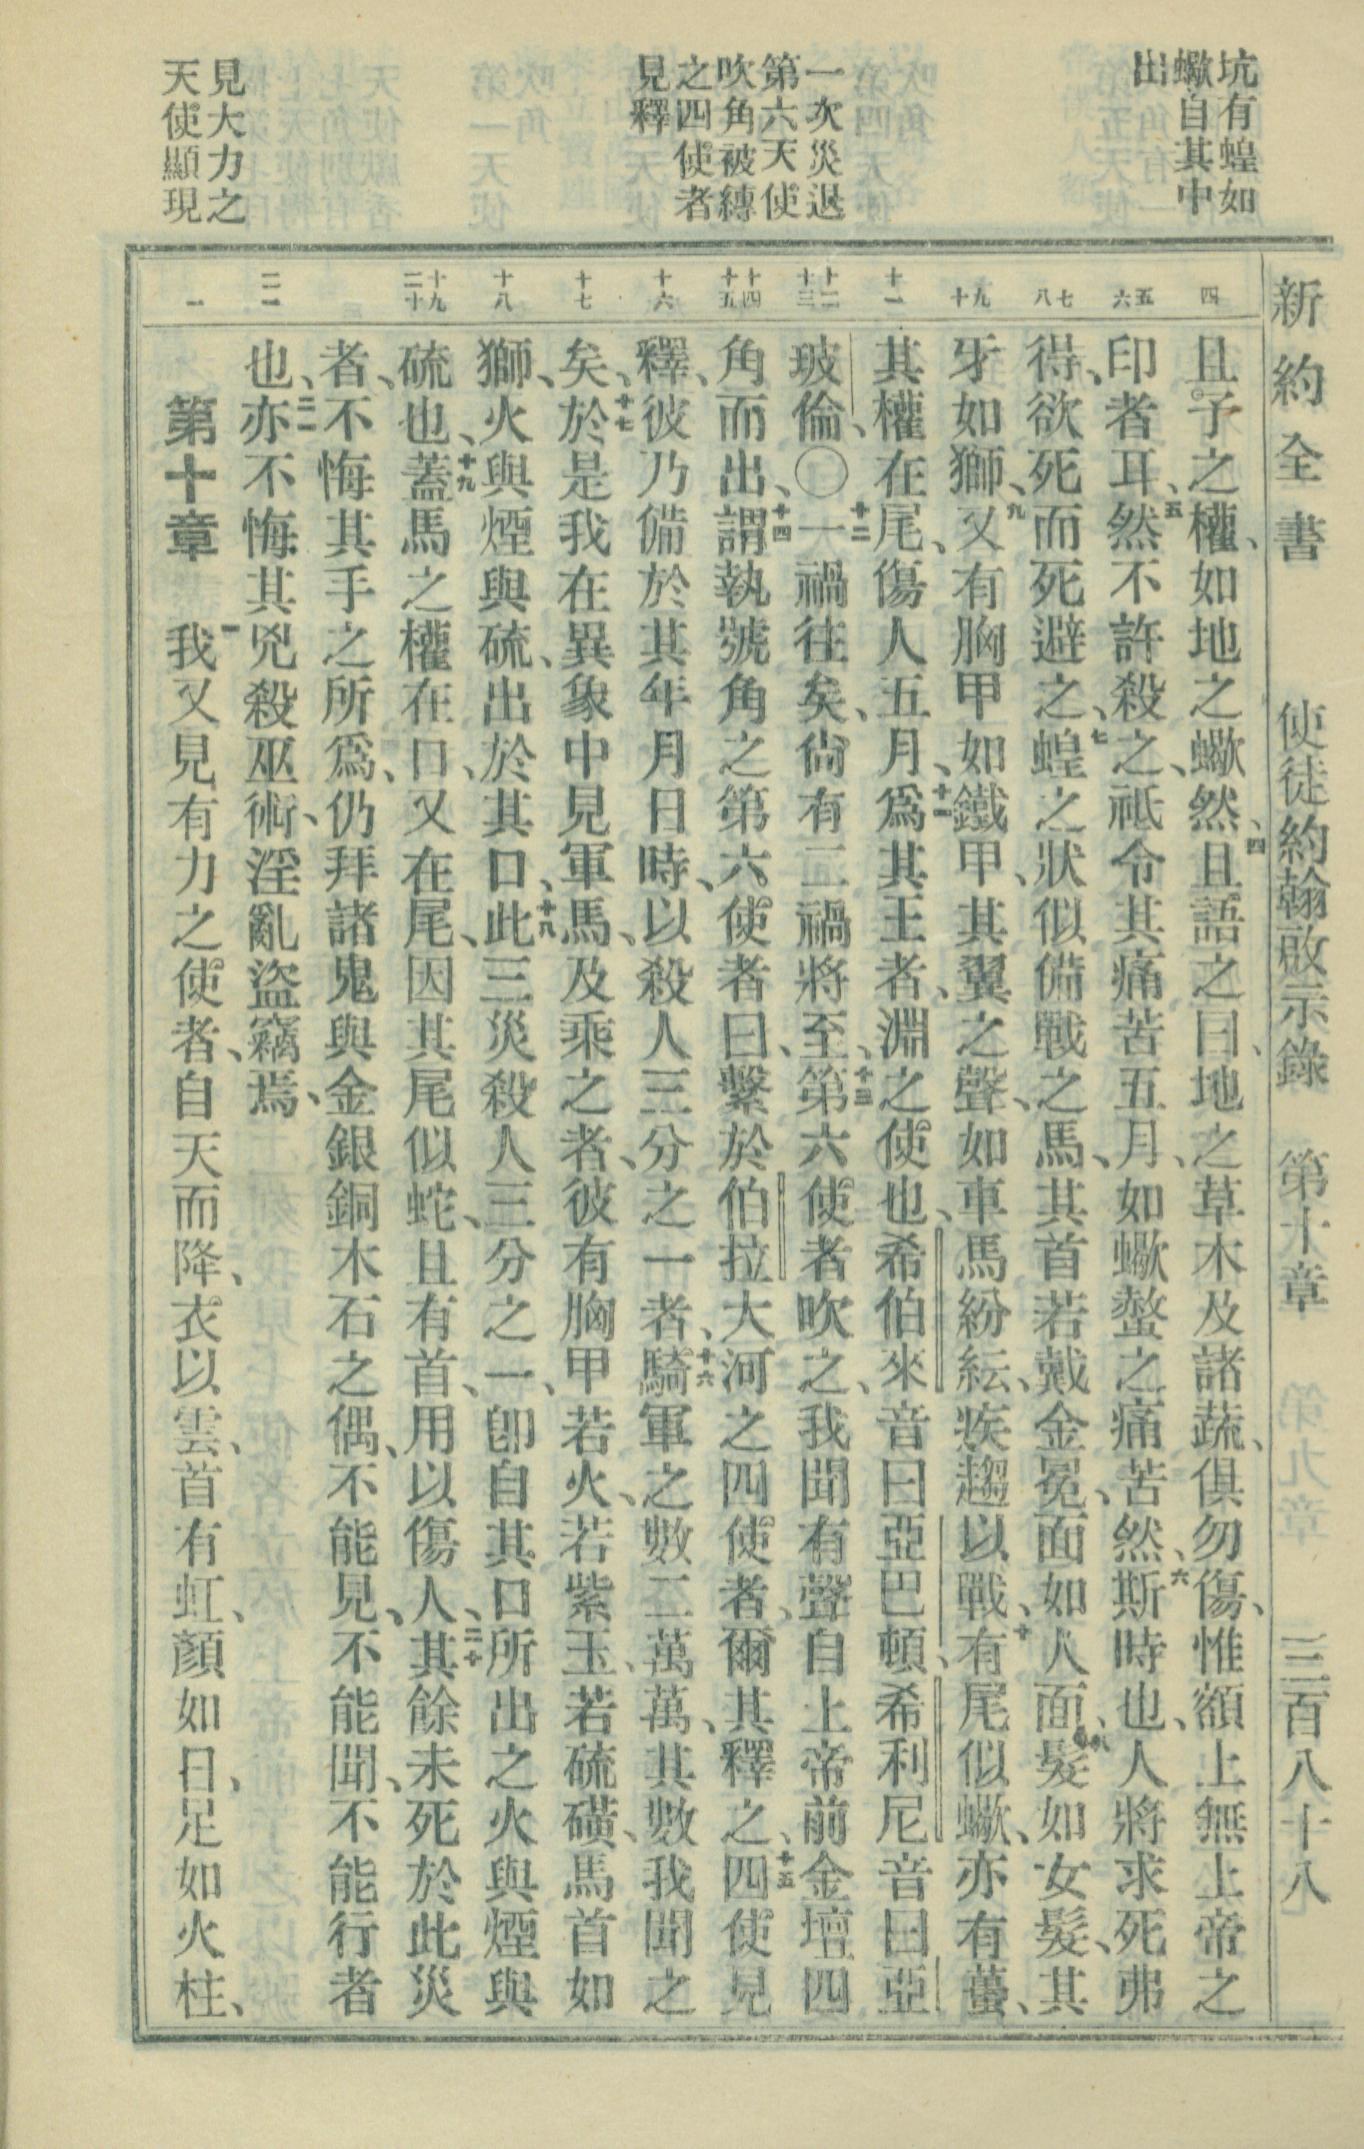 新約全書 使徒約翰啟示錄 第十章 三百八十八
坑有蝗如
蠍自其中
出
一次災退
第六天使
吹角被縛
之四使者
見釋
見大力之
天使顯現
四
五
六
七
八
九
十
十一
十二
十三
十四
十五
十六
十七
十八
十九
二十
二一
一
且予之權、如地之蠍然、四且語之曰、地之草木及諸蔬、俱勿傷、惟額上無上帝之
印者耳、五然不許殺之、祗令其痛苦五月、如蠍螫之痛苦然、六斯時也、人將求死弗
得、欲死而死避之、七蝗之狀似備戰之馬、其首若戴金冕、面如人面、八髮如女髮、其
牙如獅、九又有胸甲如鐵甲、其翼之聲、如車馬紛紜、疾趨以戰、十有尾似蠍、亦有蠆、
其權在尾、傷人五月、十一爲其王者、淵之使也、希伯來音曰亞巴頓、希利尼音曰亞
玻倫、〇十二一禍往矣、尙有二禍將至、十三第六使者吹之、我聞有聲自上帝前金壇四
角而出、十四謂執號角之第六使者曰、繫於伯拉大河之四使者、爾其釋之、十五四使見
釋、彼乃備於其年月日時、以殺人三分之一者、十六騎軍之數二萬萬、其數我聞之
矣、十七於是我在異象中見軍馬、及乘之者、彼有胸甲若火、若紫玉、若硫磺、馬首如
獅、火與煙與硫、出於其口、十八此三災殺人三分之一、卽自其口所出之火與煙與
硫也、十九蓋馬之權在口、又在尾、因其尾似蛇、且有首、用以傷人、二十其餘未死於此災
者、不悔其手之所爲、仍拜諸鬼與金銀銅木石之偶、不能見、不能聞、不能行者
也、二一亦不悔其兇殺巫術、淫亂盜竊焉、
第十章 一我又見有力之使者、自天而降、衣以雲、首有虹、顏如日、足如火柱、